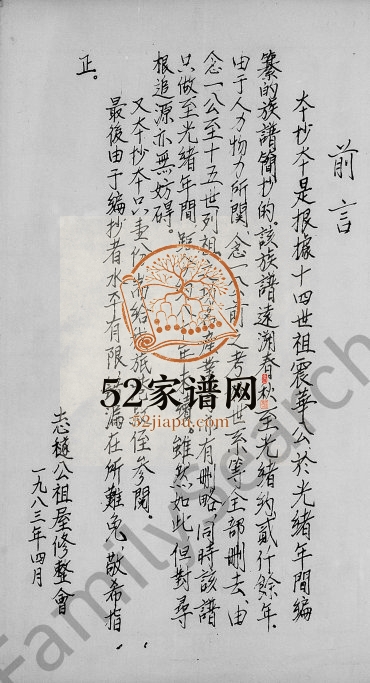 前言
本抄本是根據十四世祖震華公於光緒年間編
纂的族譜簡抄的.該族譜遠溯春秋至光緒約貳仟餘年.
由于人力物力所関,念一公前之考世系等全部刪去,由
念一公至十五世列祖產業有刪略,同時該譜
只做至光緒年間年續。雖然如此但對尋
根追源亦無妨碍。
又本抄本只壹份,給族住參閱.
最後由于編抄者水平有限,漏在所難免,敬希指
正。
志槌公祖屋修整會
一九八三年四月
52家谱网
52jiapu.com
FamilySearch